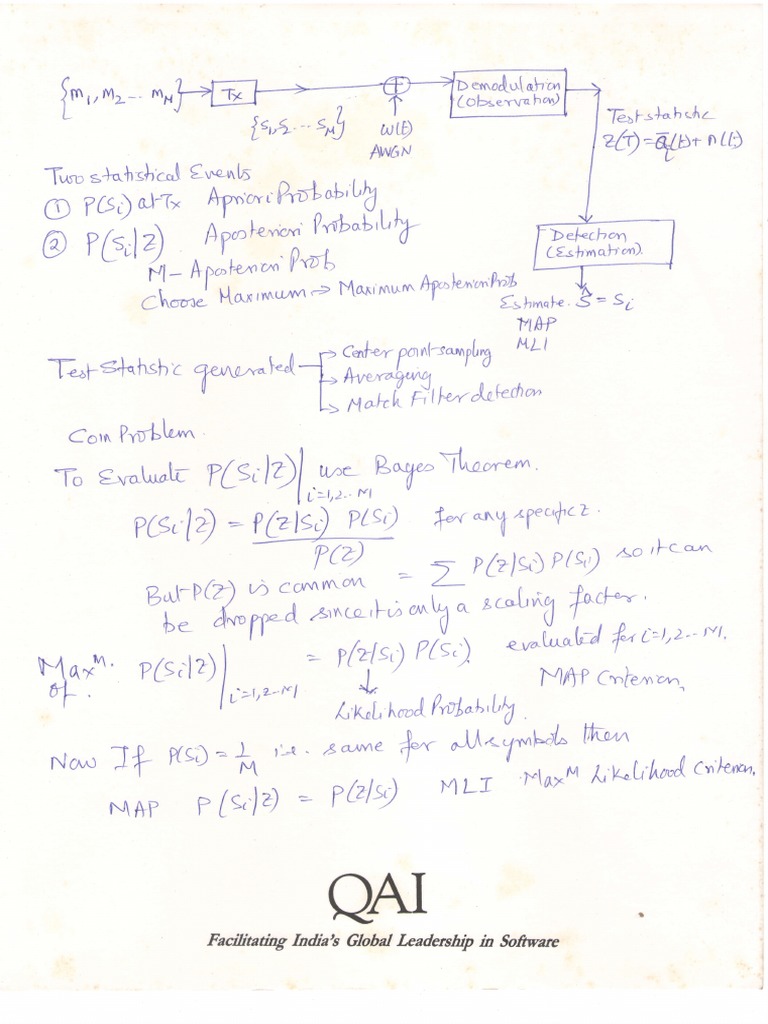 {m1, m2 ... mM} → Tx
Demodulation
(Observation)
{s1, s2 ... sM}
W(t)
AWGN
Test statistic
Z(T) = ai(t) + n(t)
Two statistical Events
① P(Si) at Tx Apriori Probability
② P(Si|Z) Aposteriori Probability
M - Aposteriori Prob
Choose Maximum → Maximum Aposteriori Prob
Detection
(Estimation).
Estimate. Ŝ = Si
MAP
MLI
Test Statistic generated
→ Center point sampling
→ Averaging
→ Match Filter detection
Coin Problem.
To Evaluate P(Si|Z)| i=1,2..M use Bayes Theorem.
P(Si|Z) = P(Z|Si) P(Si) / P(Z) for any specific z.
But P(Z) is common = Σ P(Z|Si) P(Si) so it can
be dropped since it is only a scaling factor.
Max^m. of. P(Si|Z)| i=1,2..M = P(Z|Si) P(Si). evaluated for i=1,2..M.
MAP Criterion,
↓
Likelihood Probability.
Now If P(Si) = 1/M i.e. same for all symbols then
MAP P(Si|Z) = P(Z|Si) MLI Max^m Likelihood Criterion.
QAI
Facilitating India's Global Leadership in Software